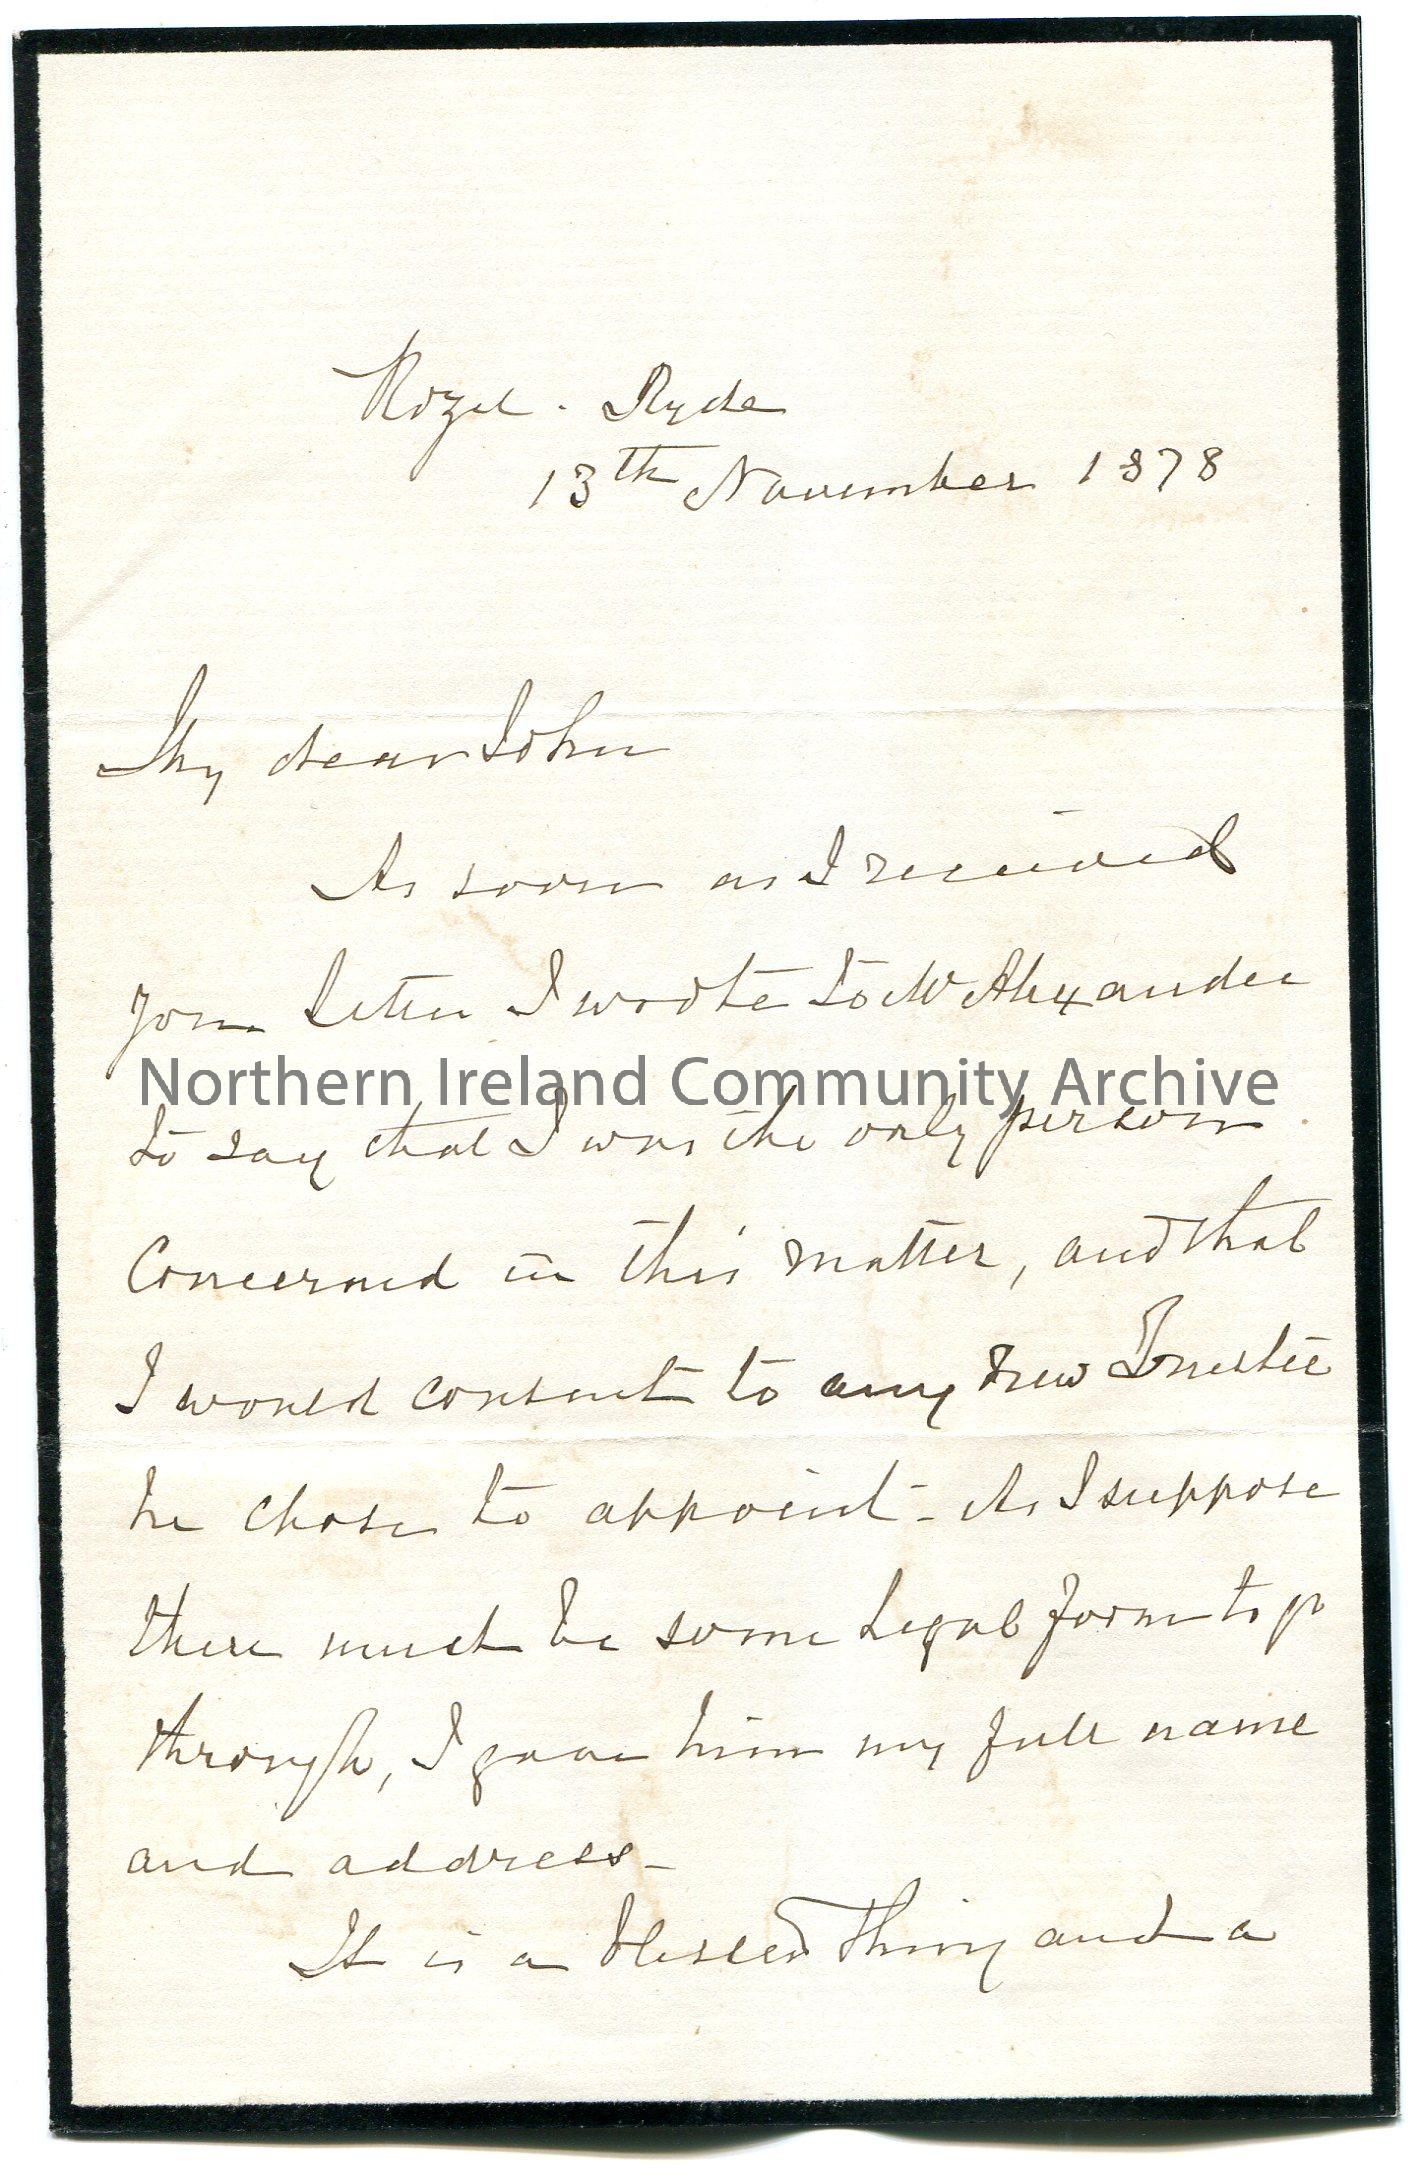 Rozel . Ryde
13th November 1878
My dear John
As soon as I received
your letter I wrote to Mr Alexander
Northern Ireland Community Archive
to say that I was the only person
Concerned in this matter, and that
I would consent to any new Trustee
he chose to appoint - As I suppose
there must be some Legal form to go
through, I gave him my full name
and address -
It is a blessed thing and a